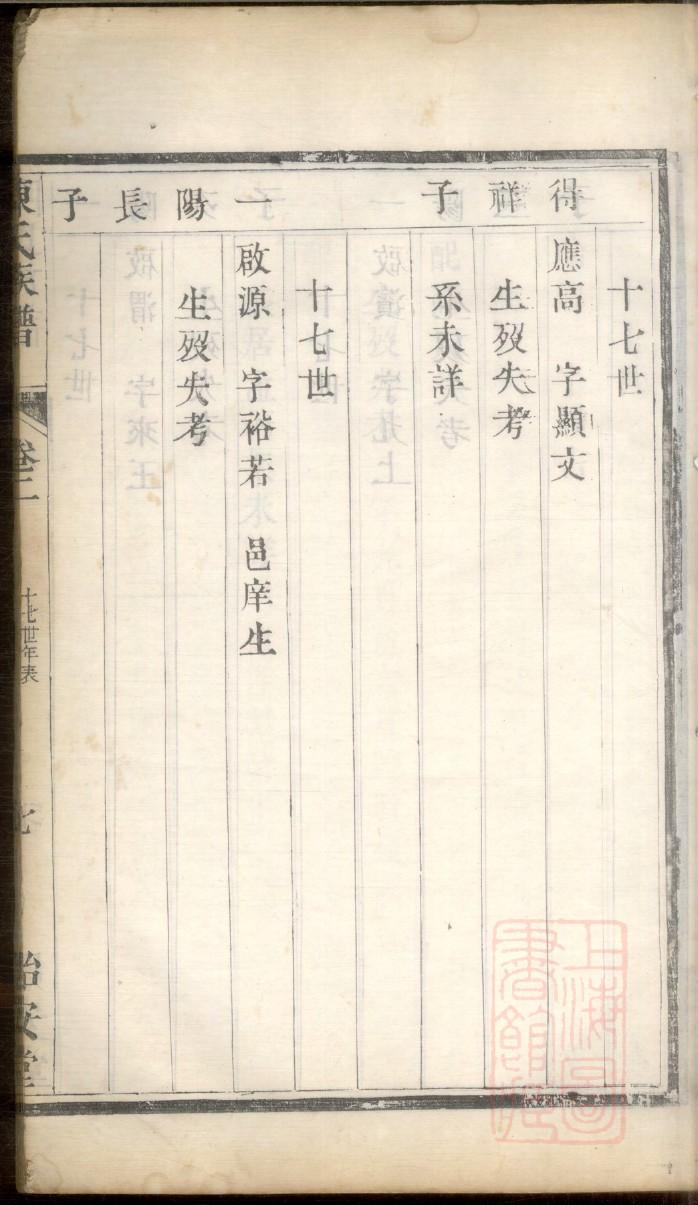 十七世
得祥子
應高 字顯文
生歿失考
系未詳
十七世
一陽長子
啟源 字裕若 邑庠生
生歿失考
陳氏族譜
卷二
十七世年表
七
怡安堂
上海圖
書館藏